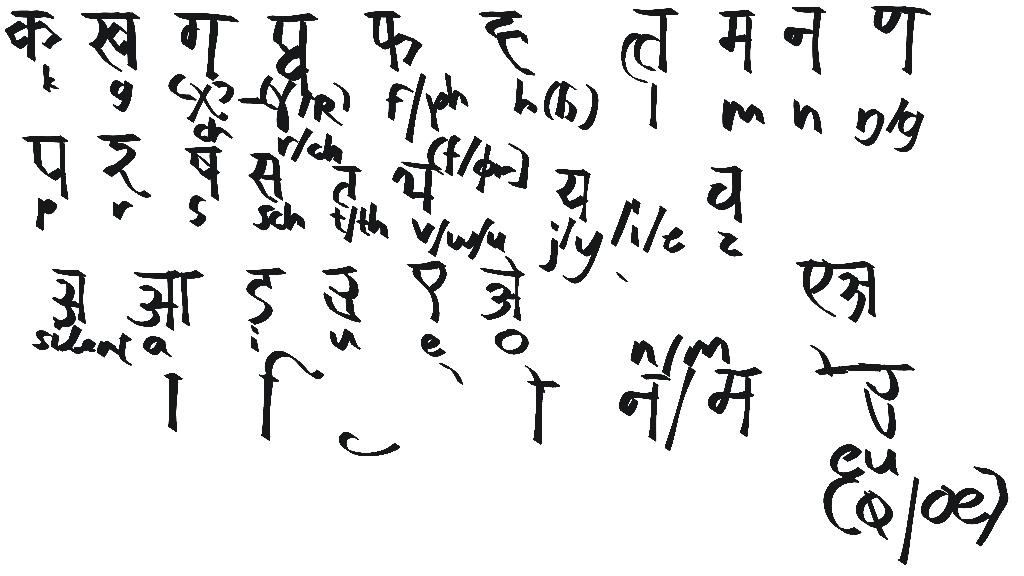 क ख ग घ फ ह ल म न ण
k g (X)-(Y/R) f/ph h(h) l m n ŋ/g
ch r/ch
प र ष स त भ (f/pr) य व
p r s sch t/th v/w/u j/y/i/e z
अ आ इ उ ए ओ एअ
silent a i u e o
n/m
ा ि ु े ो न/म
eu
(ø/oe)